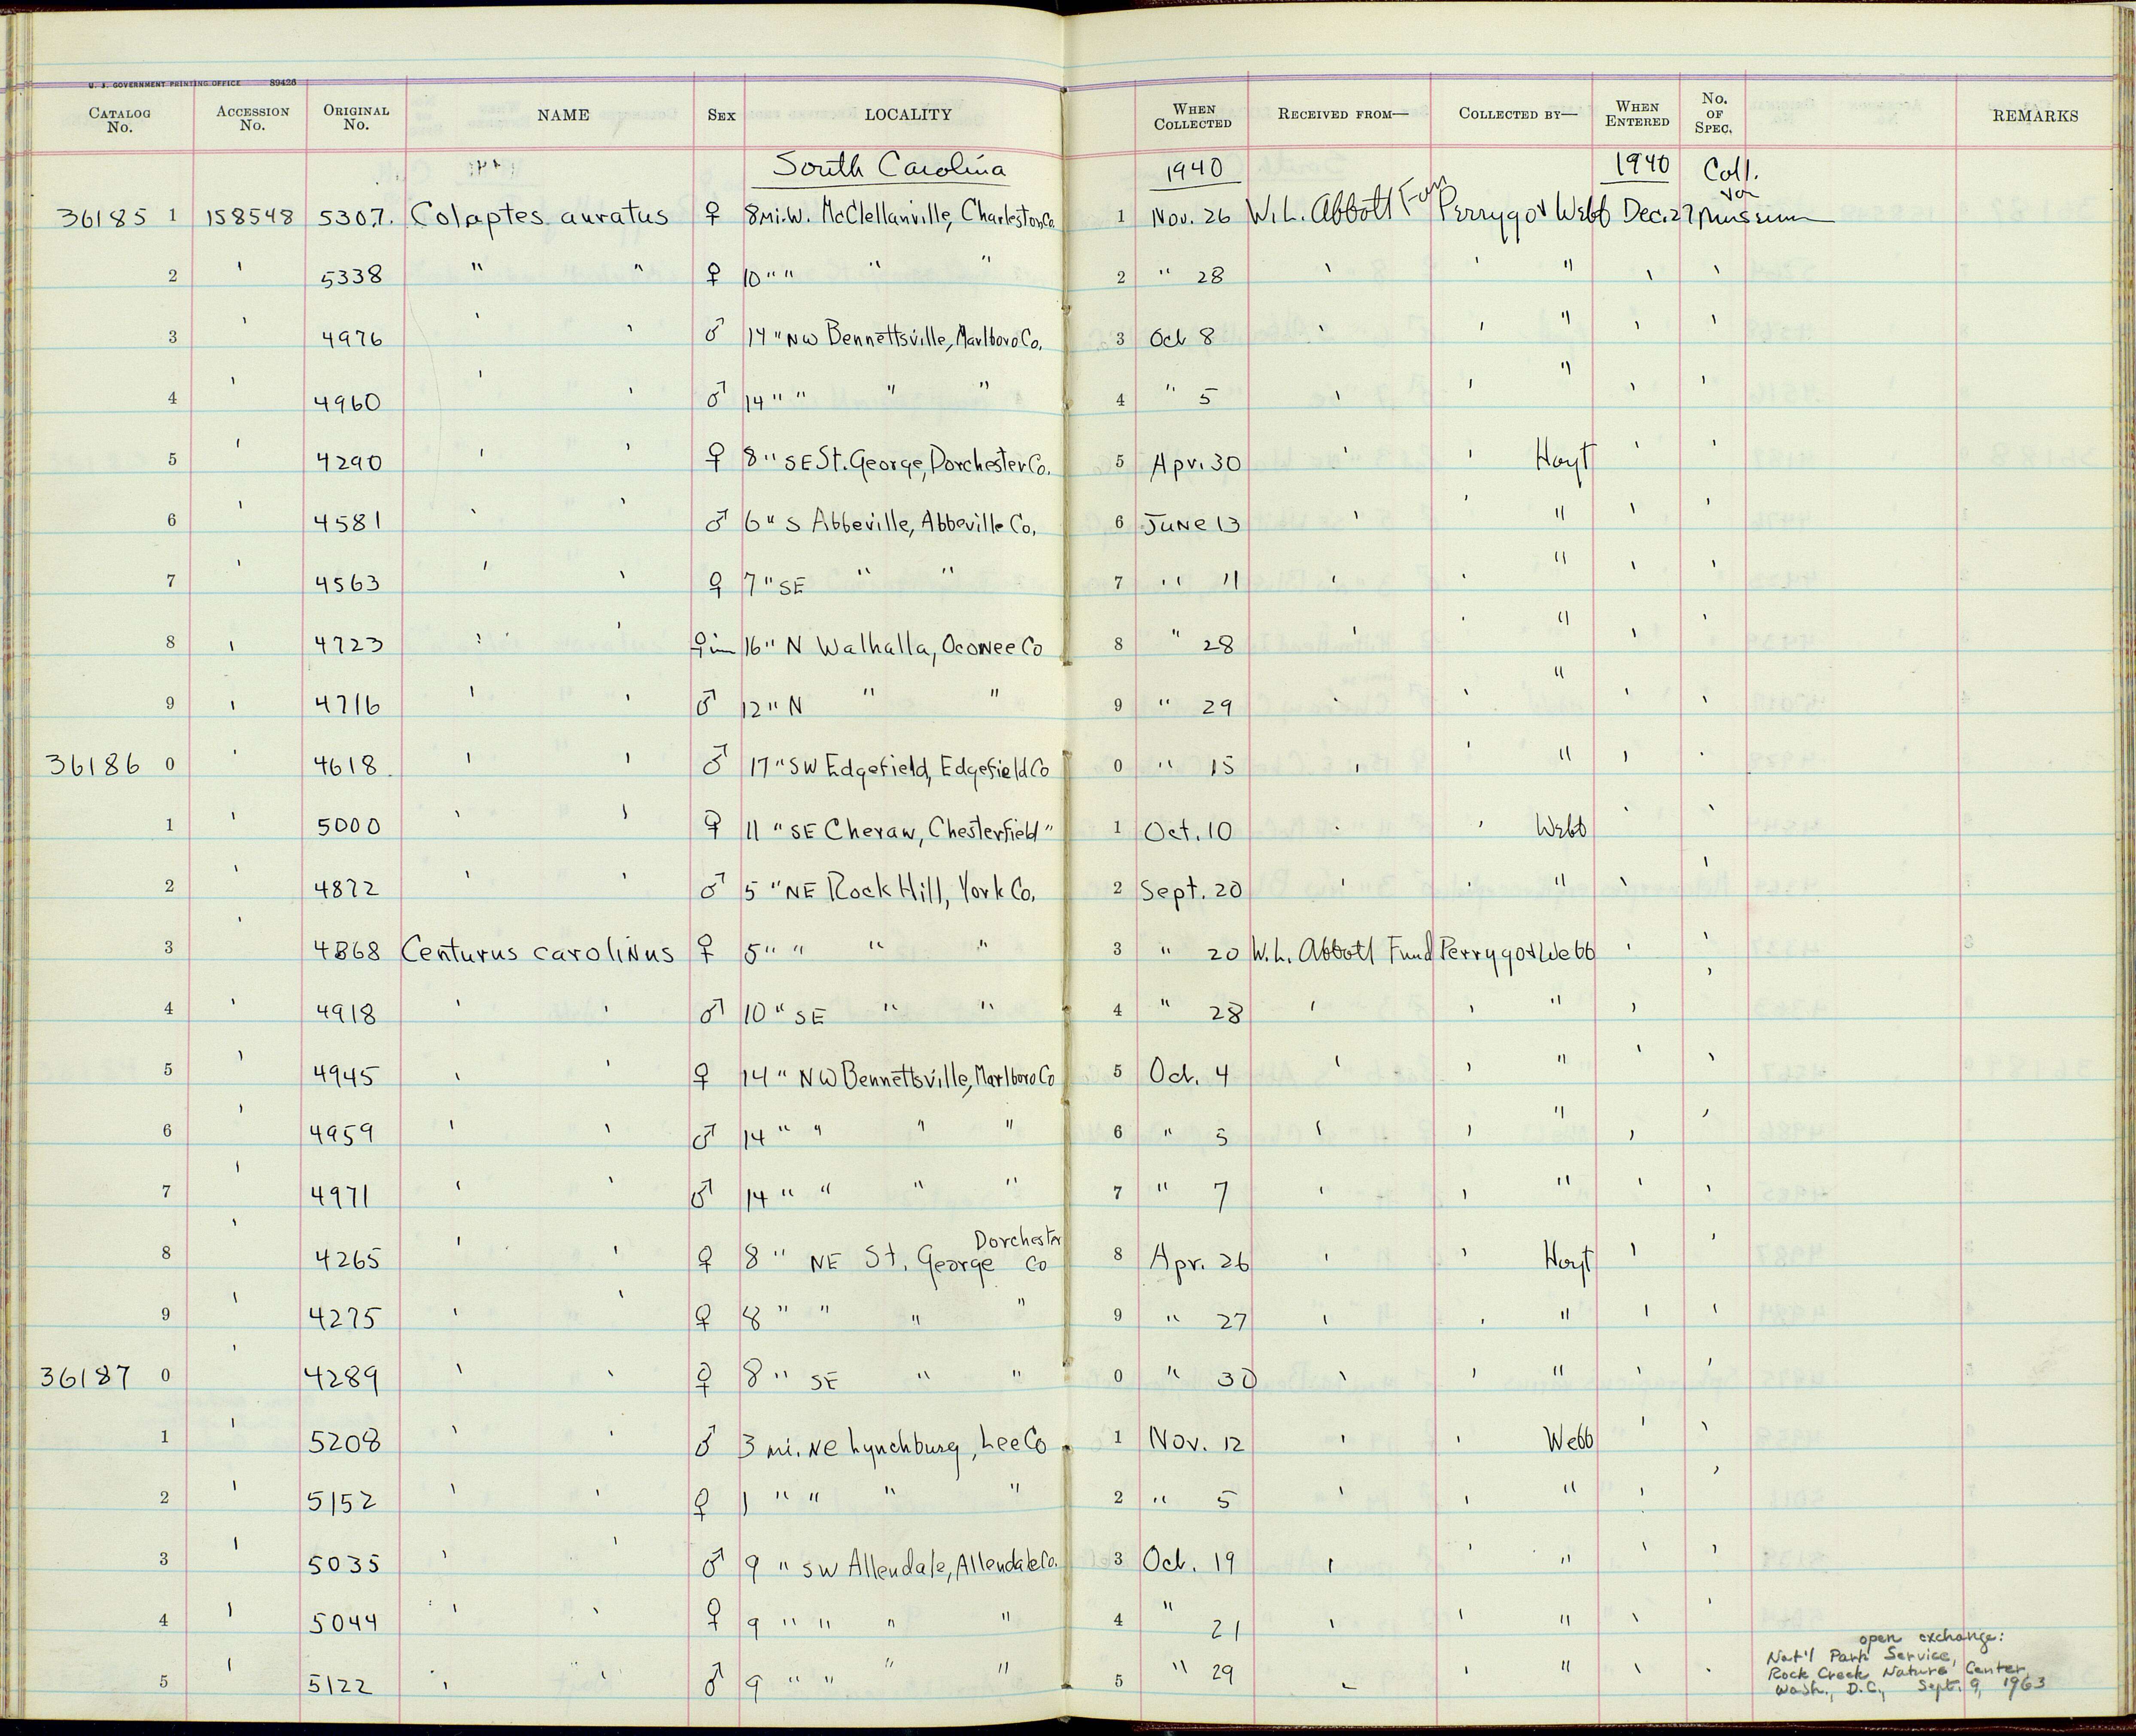 U. S. GOVERNMENT PRINTING OFFICE 89426
CATALOG No. ACCESSION No. ORIGINAL No. NAME SEX LOCALITY WHEN COLLECTED RECEIVED FROM— COLLECTED BY— WHEN ENTERED No. OF SPEC. REMARKS
South Carolina 1940 1940 Coll.
36185 1 158548 5307. Colaptes auratus ♀ 8mi.W. McClellanville, Charleston Co. 1 Nov. 26 W.L. Abbott Perrygo & Webb Dec. 27 museum
2 ' 5338 " " ♀ 10 " " " " 2 " 28 ' ' " ' '
3 ' 4976 ' ' ♂ 14 " NW Bennettsville, Marlboro Co. 3 Oct 8 ' ' " ' '
4 ' 4960 ' ' ♂ 14 " " " " 4 " 5 ' ' " ' '
5 ' 4290 ' ' ♀ 8 " SE St. George, Dorchester Co. 5 Apr. 30 ' ' Hoyt ' '
6 ' 4581 ' ' ♂ 6 " S Abbeville, Abbeville Co. 6 June 13 ' ' " ' '
7 ' 4563 ' ' ♀ 7 " SE " " 7 " 11 ' ' " ' '
8 ' 4723 ' ' ♀ im 16 " N Walhalla, Oconee Co 8 " 28 ' ' " ' '
9 ' 4716 ' ' ♂ 12 " N " " 9 " 29 ' ' " ' '
36186 0 ' 4618 ' ' ♂ 17 " SW Edgefield, Edgefield Co 0 " 15 ' ' " ' '
1 ' 5000 ' ' ♀ 11 " SE Cheraw, Chesterfield " 1 Oct. 10 ' ' Webb ' '
2 ' 4872 ' ' ♂ 5 " NE Rock Hill, York Co. 2 Sept. 20 ' ' " ' '
3 ' 4868 Centurus carolinus ♀ 5 " " " " 3 " 20 W.L. Abbott Fund Perrygo & Webb ' '
4 ' 4918 ' ' ♂ 10 " SE " " 4 " 28 ' ' " ' '
5 ' 4945 ' ' ♀ 14 " NW Bennettsville, Marlboro Co 5 Oct. 4 ' ' " ' '
6 ' 4959 ' ' ♂ 14 " " " " 6 " 5 ' ' " ' '
7 ' 4971 ' ' ♂ 14 " " " " 7 " 7 ' ' " ' '
8 ' 4265 ' ' ♀ 8 " NE St. George Dorchester Co 8 Apr. 26 ' ' Hoyt ' '
9 ' 4275 ' ' ♀ 8 " " " " 9 " 27 ' ' " ' '
36187 0 ' 4289 ' ' ♀ 8 " SE " " 0 " 30 ' ' " ' '
1 ' 5208 ' ' ♂ 3 mi. NE Lynchburg, Lee Co 1 Nov. 12 ' ' Webb ' '
2 ' 5152 ' ' ♀ 1 " " " " 2 " 5 ' ' " ' '
3 ' 5035 ' ' ♂ 9 " SW Allendale, Allendale Co. 3 Oct. 19 ' ' " ' '
4 ' 5044 ' ' ♀ 9 " " " " 4 " 21 ' ' " ' '
5 ' 5122 ' ' ♂ 9 " " " " 5 " 29 ' ' " ' '
open exchange:
Nat'l Park Service,
Rock Creek Nature Center,
Wash., D.C., Sept. 9, 1963